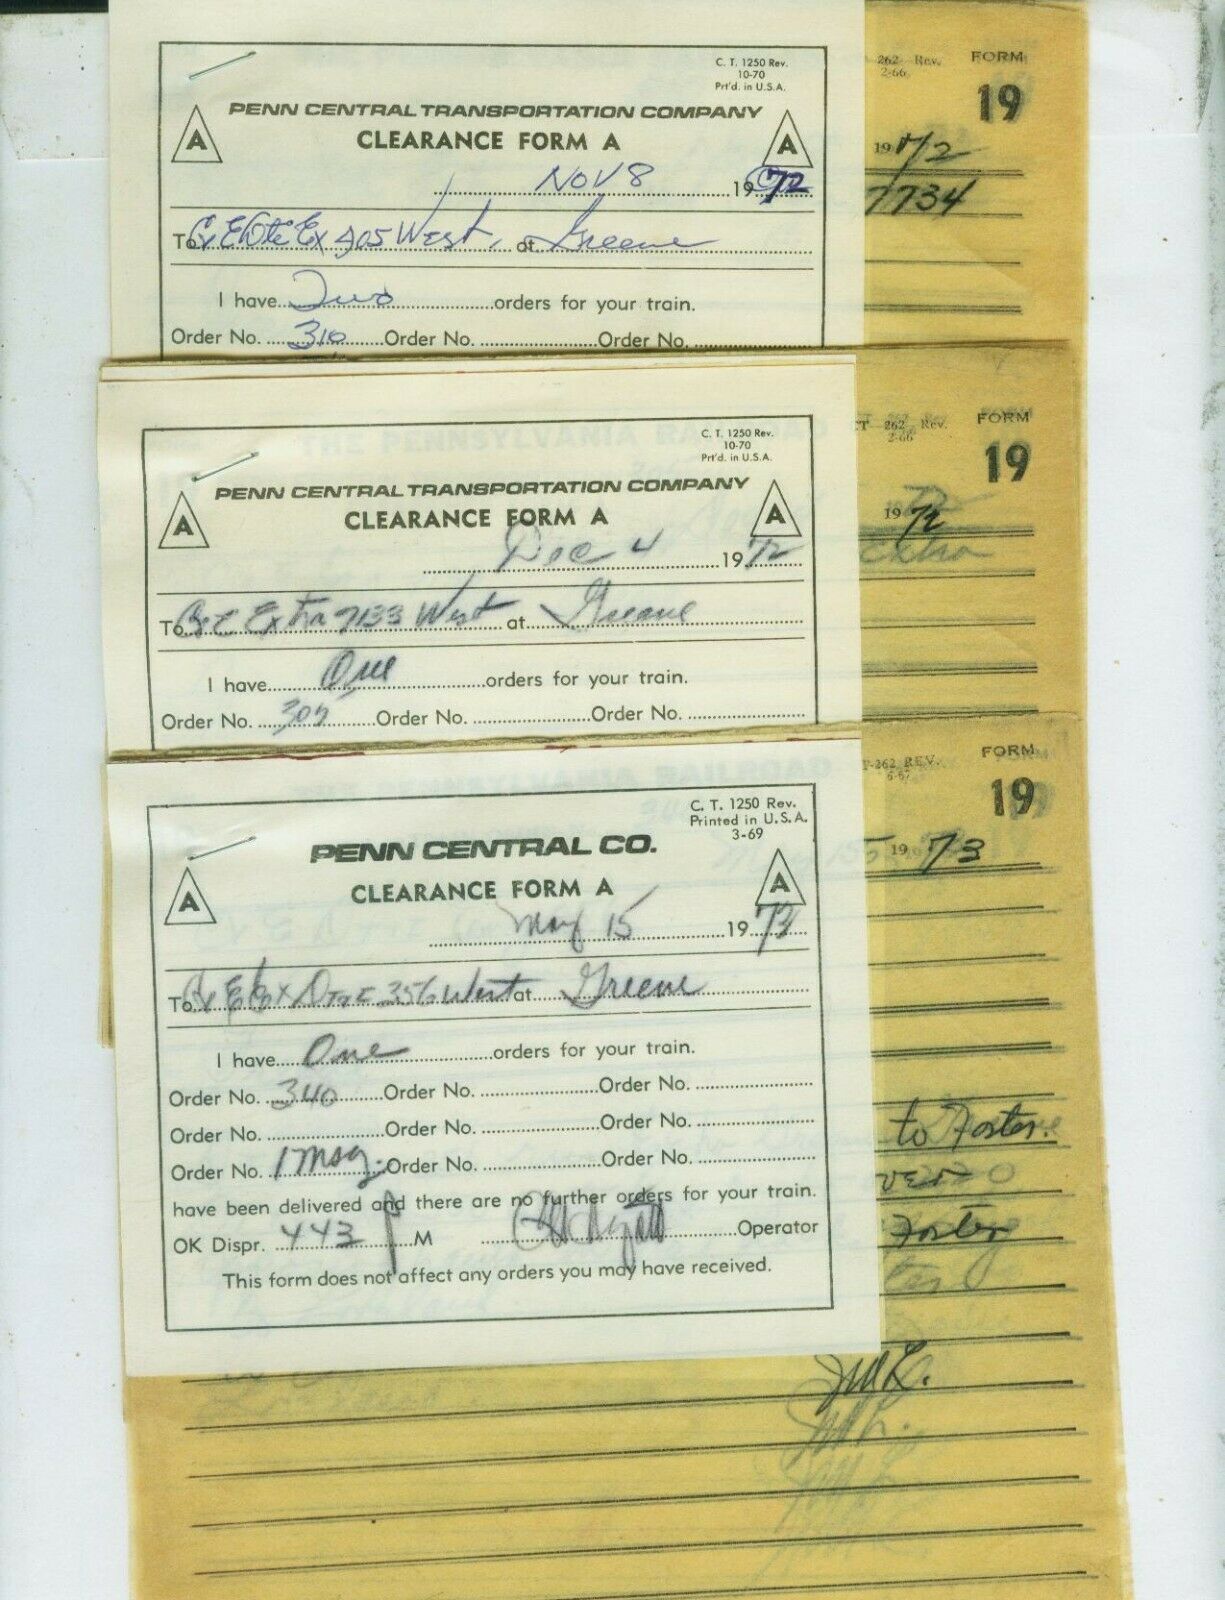 C. T. 1250 Rev.
10-70
Prt'd. in U.S.A.
PENN CENTRAL TRANSPORTATION COMPANY
A CLEARANCE FORM A A
Nov 8 1972
To West, at Greene
I have Two orders for your train.
Order No. 310 Order No. Order No.
262 Rev. FORM
2-66
19
1972
7734
C. T. 1250 Rev.
10-70
Prt'd. in U.S.A.
PENN CENTRAL TRANSPORTATION COMPANY
A CLEARANCE FORM A A
Dec 4 1972
To C&E Extra 7133 West at Greene
I have One orders for your train.
Order No. 305 Order No. Order No.
CT 262 Rev. FORM
2-66
19
1972
Extra
C. T. 1250 Rev.
Printed in U.S.A.
3-69
PENN CENTRAL CO.
A CLEARANCE FORM A A
May 15 1973
To West at Greene
I have One orders for your train.
Order No. 340 Order No. Order No.
Order No. Order No. Order No.
Order No. 1 Msg. Order No. Order No.
have been delivered and there are no further orders for your train.
OK Dispr. 443 P M Operator
This form does not affect any orders you may have received.
T-262 REV. FORM
6-67
19
1973
to Foster.
Foster